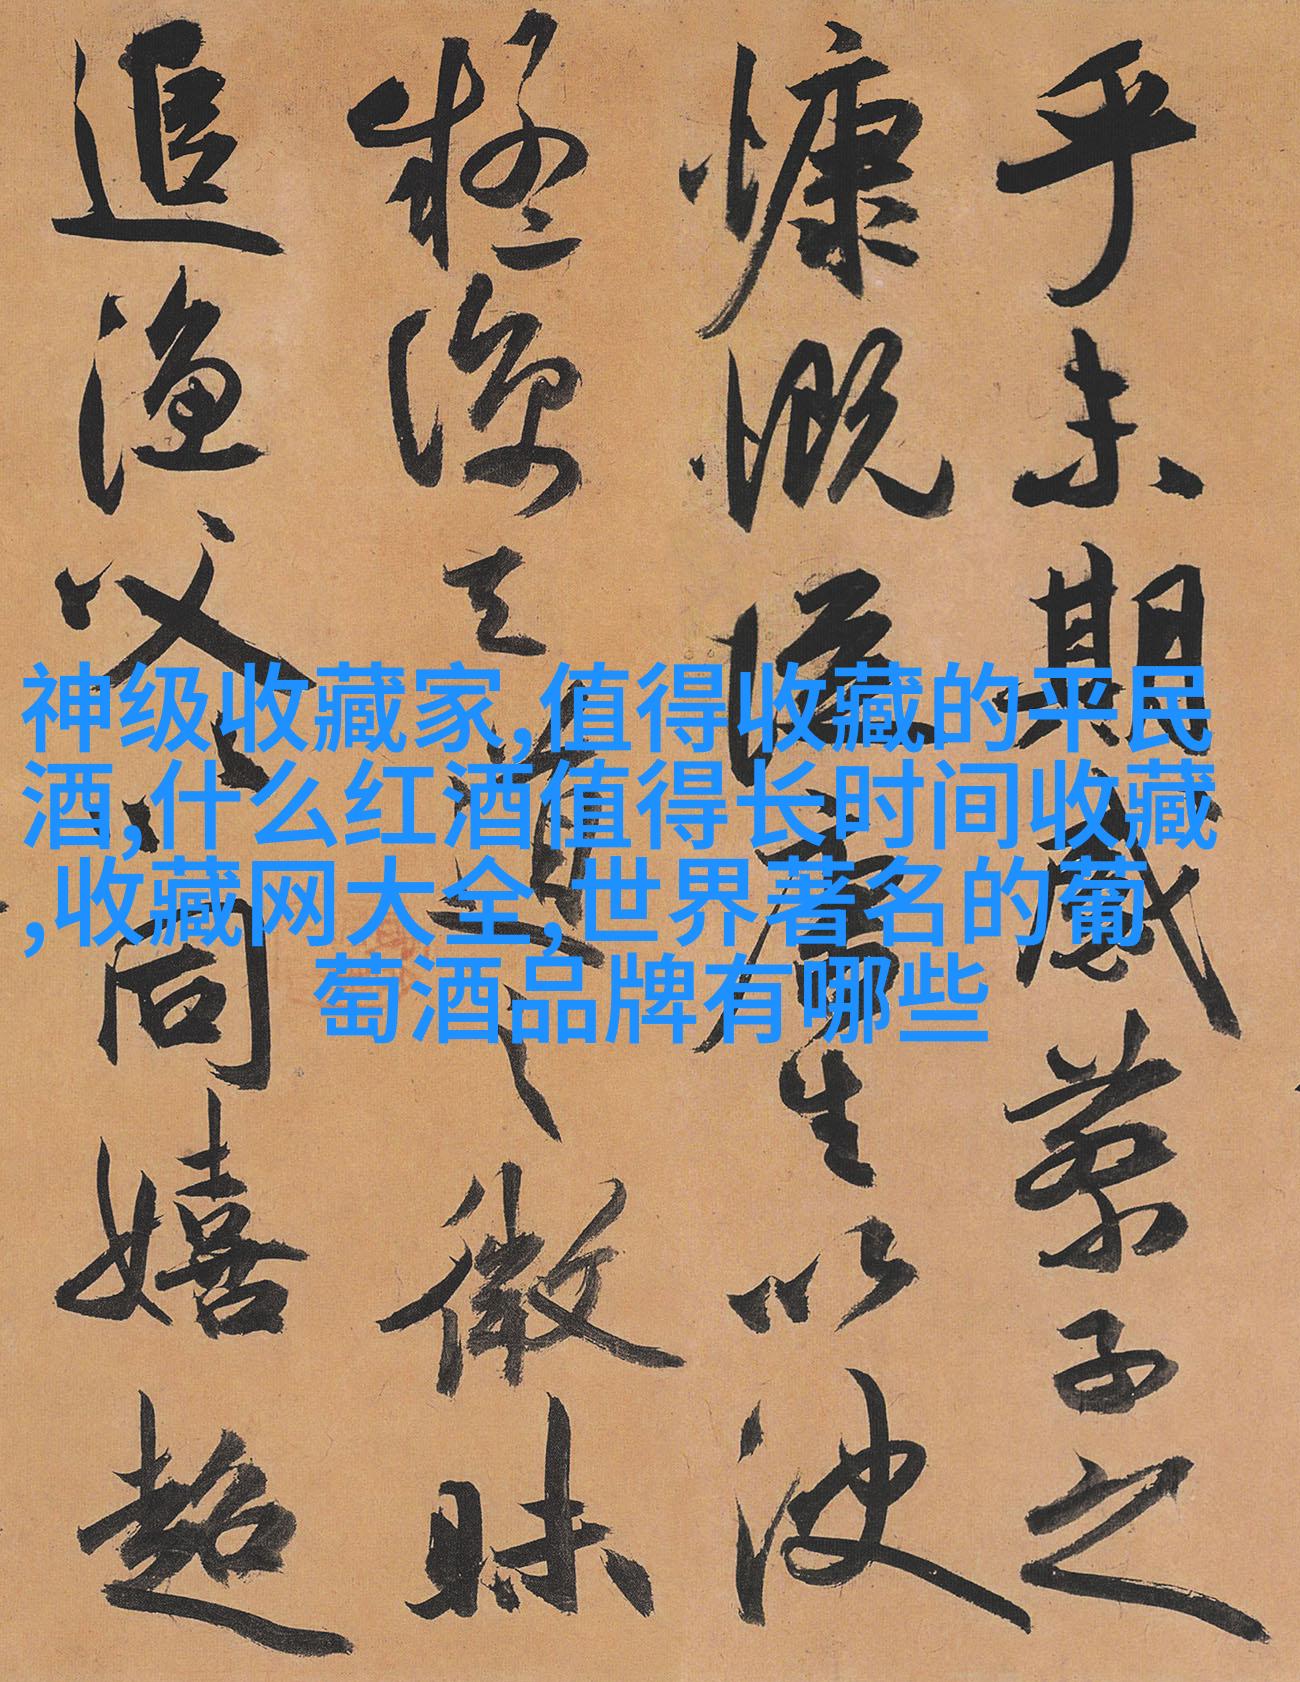 乎未期感蔡子之
慷慨從唐生以決
疑諒天道之微昧
追漁父以同嬉超
神级收藏家,值得收藏的平民
酒,什么红酒值得长时间收藏
,收藏网大全,世界著名的葡
萄酒品牌有哪些